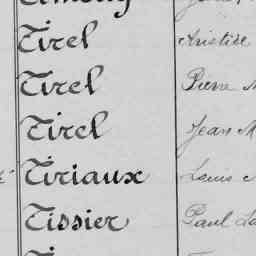 Tirel Aristide
Tirel Pierre
Tirel Jean M
Tiriaux Louis
Tissier Paul